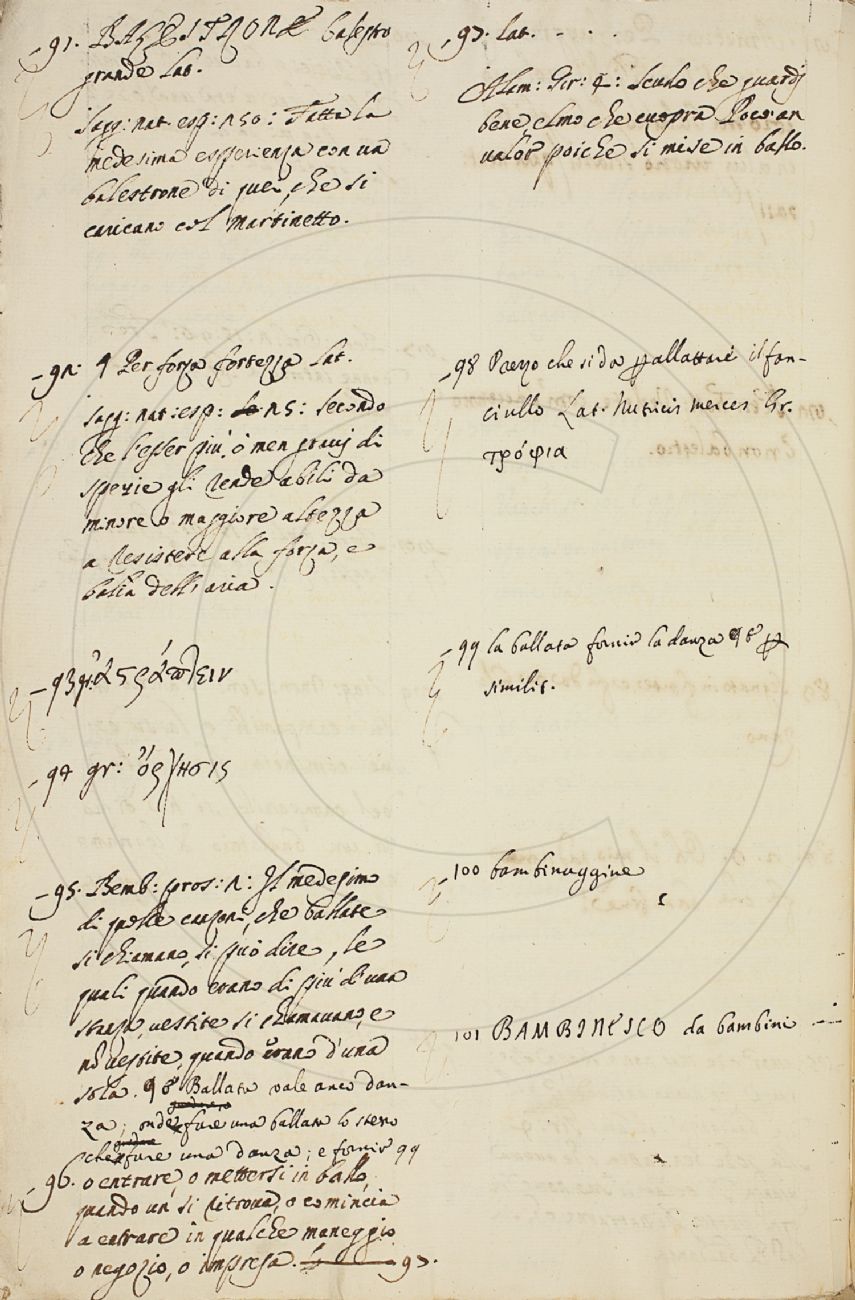 91. BALESTRONE balestro
grande Lat.
Sagg: nat. esp: 250: Fatta la
medesima esperienza con un
balestrone di quei, che si
caricano col martinetto.
92. ¶ Per forza fortezza Lat.
Sagg: nat: esp: 25: secondo
che l'esser più, o men gravi di
spezie gli rende abili da
minore o maggiore altezza
a resistere alla forza, e
balìa dell'aria.
93 gr. ἀςράπλειν
94 gr: ὄρχησις
95. Bemb: pros: 2: Il medesimo
di quelle canzoni, che ballate
si chiamano, si può dire, le
quali quando erano di più d'una
stanza, vestite si chiamavano, e
nō vestite, quando erano d'una
sola. 98 Ballata vale anco dan-
za; onde fare una ballata lo stesso
che fare una danza; e fornir 99
96. o entrare, o mettersi in ballo,
quando un si ritrova, o comincia
a entrare in qualche maneggio
o negozio, o impresa. 97.
97. lat. - . .
Alam: Gir: 4: scudo che guardi
bene, elmo che cuopra Poco an
valor poiche si mise in ballo.
98 Prezzo che si da ꝑ allattare il fan-
ciullo Lat. Nutricis merces Gr.
τρόφια
99 la ballata fornir la danza 98 ꝑ
similit.
100 bambinaggine
101 BAMBINESCO da bambini